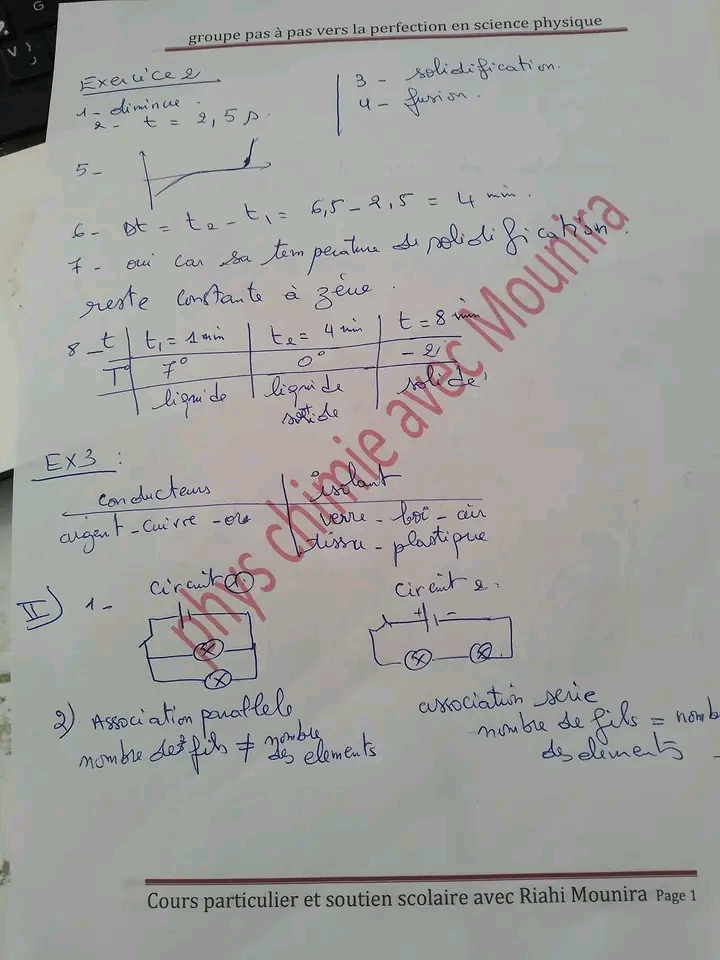 groupe pas à pas vers la perfection en science physique
Exercice 2
1- diminue.
2- t = 2,5 s.
3 - solidification.
4 - fusion.
5-
6- Δt = t2 - t1 = 6,5 - 2,5 = 4 min.
7 - oui car sa température de solidification.
reste constante à zéro.
8_ t | t1 = 1 min | t2 = 4 min | t = 8 min
T° | 7° | 0° | - 2
liquide | liquide | solide
solide
EX3 :
conducteurs | isolant
argent - cuivre - or | verre - boi - air
tissu - plastique
II) 1-
circuit 1.
circuit 2.
+ -
2) Association parallele
nombre des fils ≠ nombre
des elements
association serie
nombre de fils = nomb
des elements
phys chimie avec Mounira
Cours particulier et soutien scolaire avec Riahi Mounira Page 1